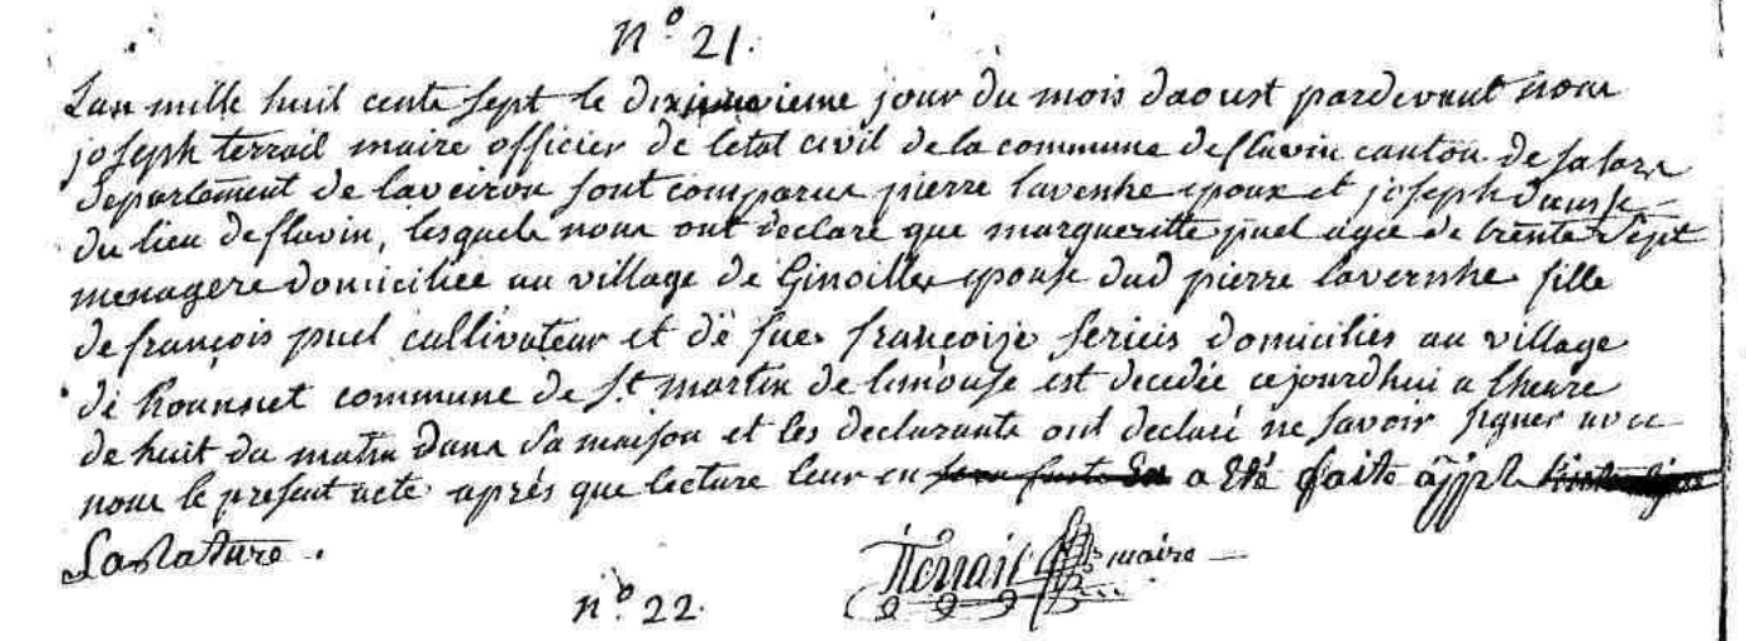 n.° 21.
Lan mille huit cents sept le dixieme jour du mois daoust pardevant nous
joseph terrail maire officier de letat civil de la commune deflavin canton de
departement de laveiron sont comparus pierre lavernhe epoux et joseph
du lieu deflavin, lesquels nous ont declaré que margueritte puel agée de trente sept
menagere domiciliée au village de Ginoilles epouse dud pierre lavernhe fille
de françois puel cultivateur et dé fue françoize feriés domiciliés au village
dé Rounsuet commune de S.t martin de limouse est decedée cejourdhui a lheure
de huit du matin dans sa maison et les declarants ont declaré ne savoir signer avec
nous le present acte aprés que lecture leur en a eté faite
La nature.
Terrail maire
n.° 22.